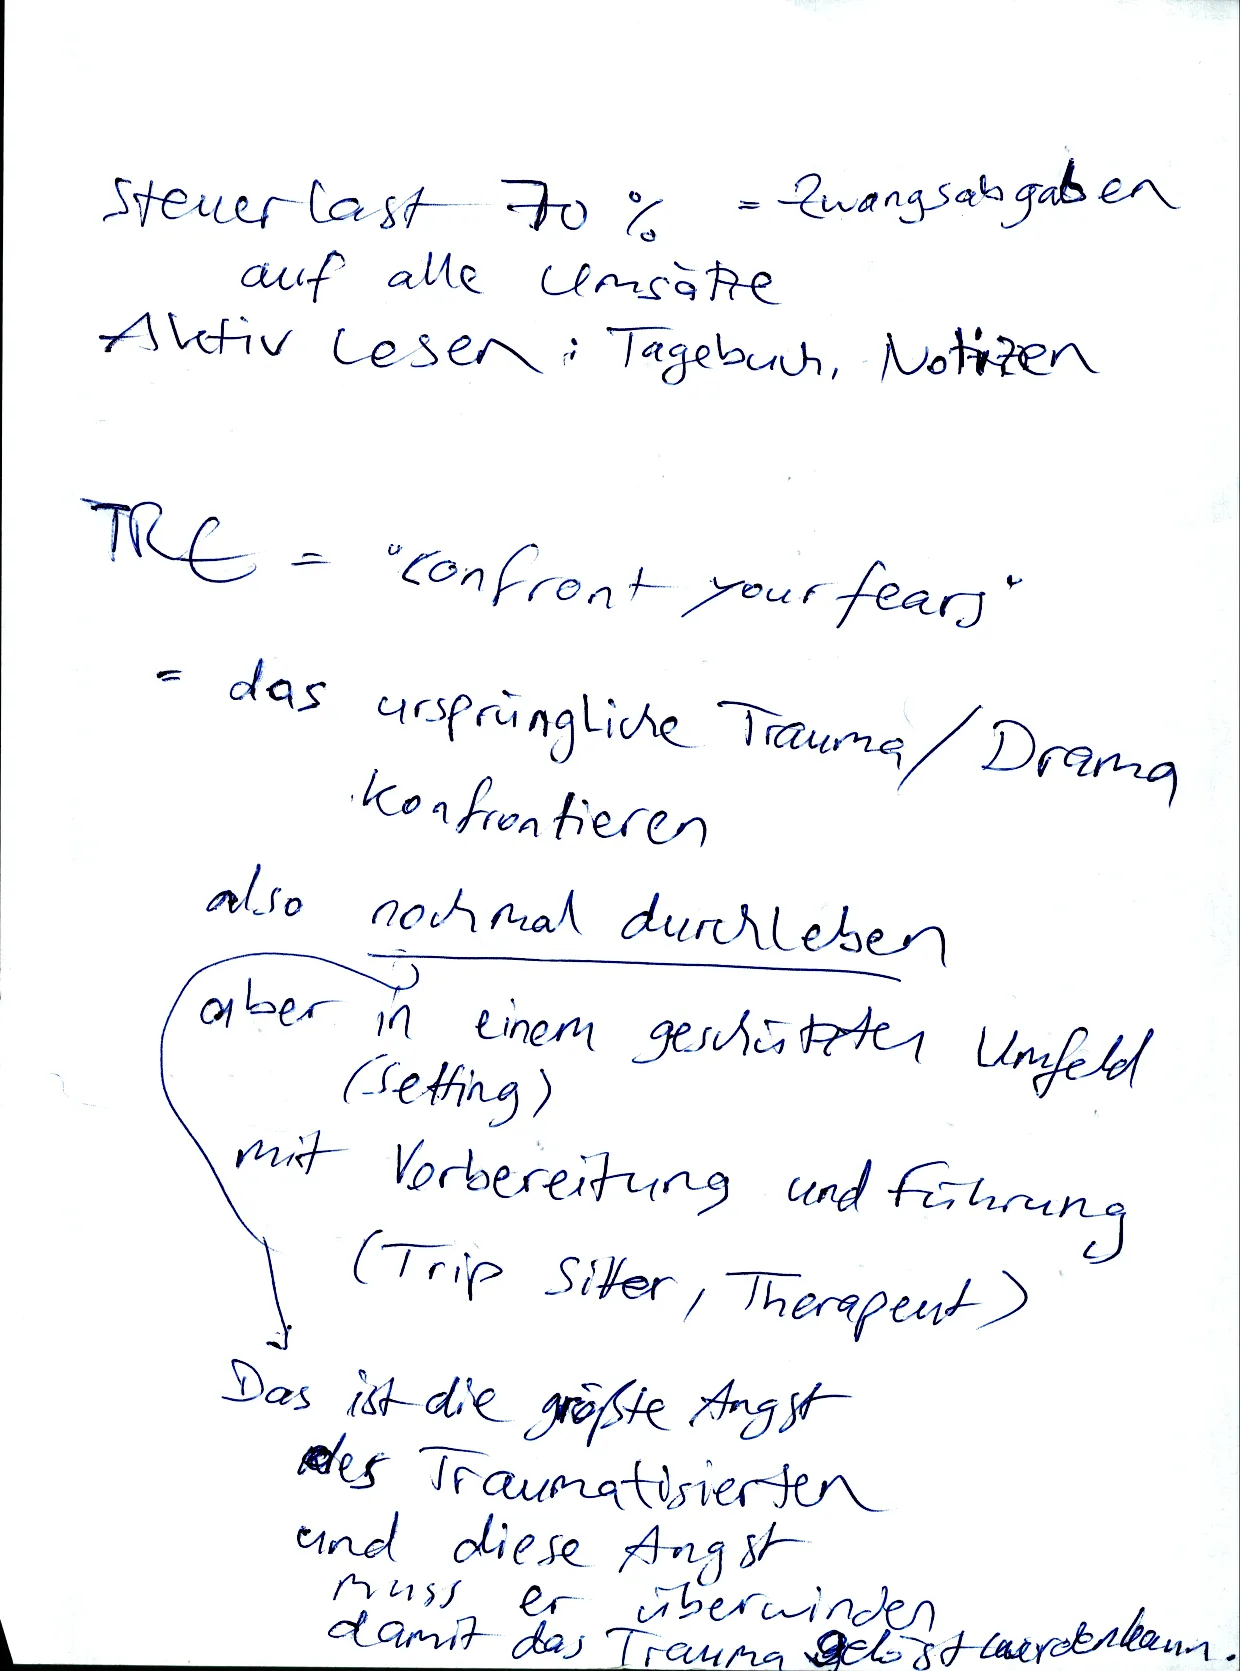 Steuerlast 70 % = Zwangsabgaben
auf alle Umsätze
Aktiv Lesen: Tagebuch, Notizen
TRE = "confront your fears"
= das ursprüngliche Trauma/Drama
konfrontieren
also nochmal durchleben
aber in einem geschützten Umfeld
(Setting)
mit Vorbereitung und Führung
(Trip Sitter, Therapeut)
Das ist die größte Angst
des Traumatisierten
und diese Angst
muss er überwinden
damit das Trauma gelöst werden kann.